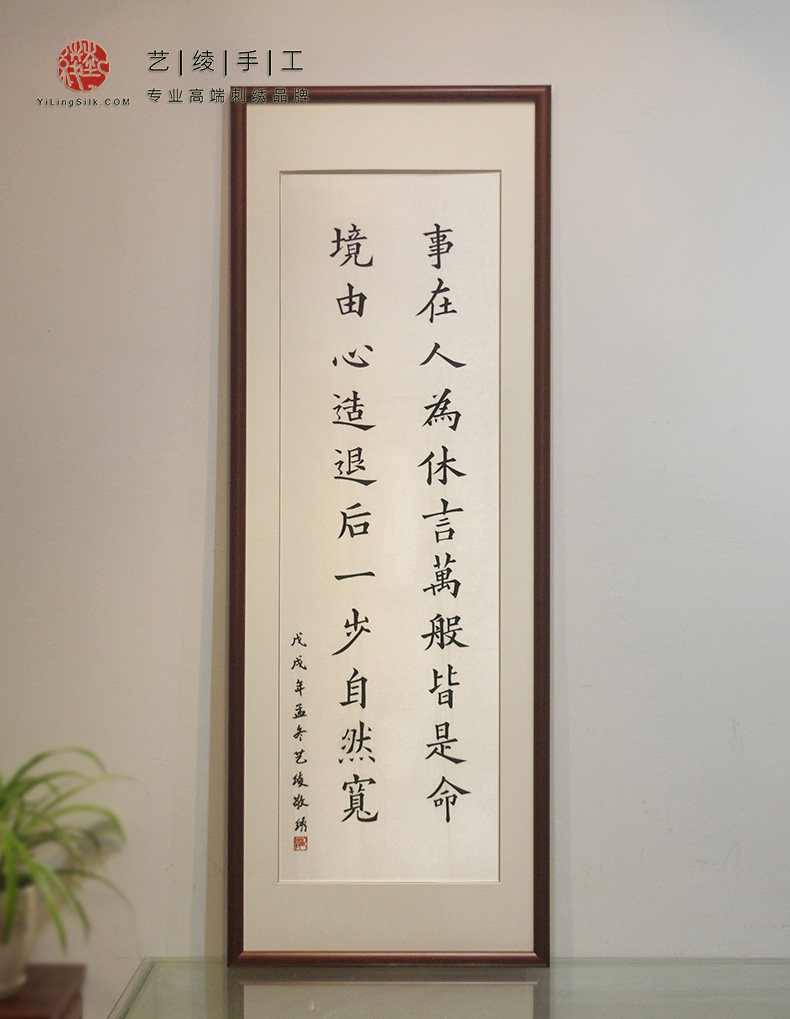 艺|绫|手|工
YiLingSilk.COM
专业高端刺绣品牌
事在人為休言萬般皆是命
境由心造退后一步自然寬
戊戌年孟冬艺绫敬绣